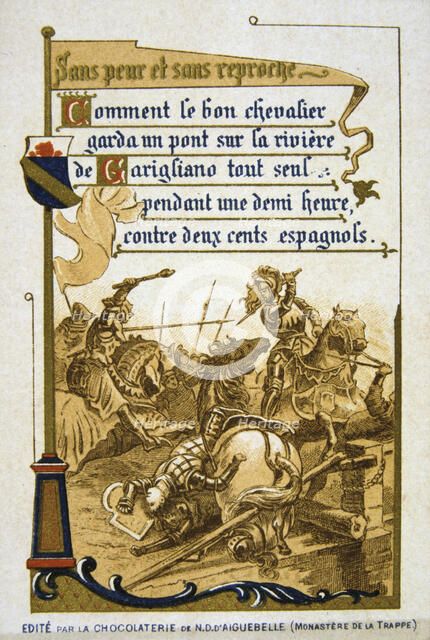 Sans peur et sans reproche
Comment le bon chevalier
garda un pont sur la rivière
de Garigliano tout seul
pendant une demi heure,
contre deux cents espagnols.
Heritage Heritage
Heritage Heritage
EDITÉ PAR LA CHOCOLATERIE DE N.D.D'AIGUEBELLE (MONASTÈRE DE LA TRAPPE)